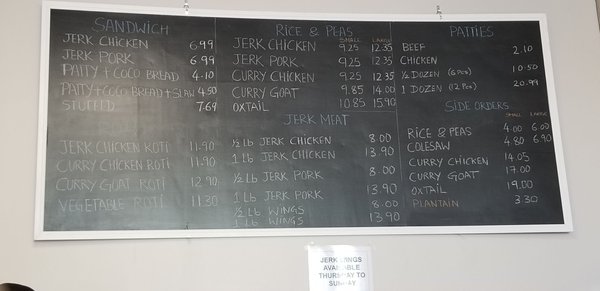 SANDWICH
JERK CHICKEN 6.99
JERK PORK 6.99
PATTY + COCO BREAD 4.10
PATTY + COCO BREAD + SLAW 4.50
STUFFED 7.69
JERK CHICKEN ROTI 11.90
CURRY CHICKEN ROTI 11.90
CURRY GOAT ROTI 12.90
VEGETABLE ROTI 11.30
RICE & PEAS
SMALL LARGE
JERK CHICKEN 9.25 12.35
JERK PORK 9.25 12.35
CURRY CHICKEN 9.25 12.35
CURRY GOAT 9.85 14.00
OXTAIL 10.85 15.90
JERK MEAT
½ lb JERK CHICKEN 8.00
1 lb JERK CHICKEN 13.90
½ lb JERK PORK 8.00
1 lb JERK PORK 13.90
½ lb WINGS 8.00
1 lb WINGS 13.90
PATTIES
BEEF 2.10
CHICKEN
½ DOZEN (6 Pcs) 10.50
1 DOZEN (12 Pcs) 20.99
SIDE ORDERS
SMALL LARGE
RICE & PEAS 4.00 6.00
COLESAW 4.80 6.90
CURRY CHICKEN 14.05
CURRY GOAT 17.00
OXTAIL 19.00
PLANTAIN 3.30
JERK WINGS
AVAILABLE
THURSDAY TO
SUNDAY